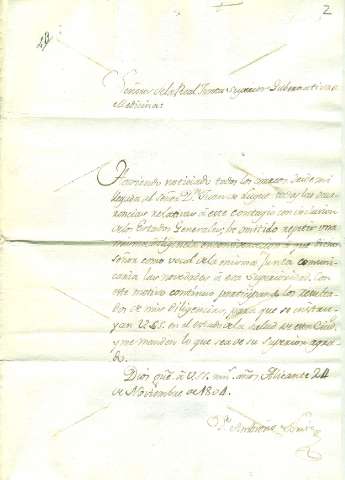 2
Señores de la Real Junta Superior Gubernativa de
Medicina.
Haviendo noticiado todos los correos desde mi
llegada, al señor Dn. Juan de todas las ocu-
rrencias relativas à este contagio con inclusion
de los Estados Generales, he omitido repetir una
misma diligencia en consideracion à que dicho
señor como vocal de la misma Junta comuni-
caria las novedades à esa Superioridad. Con
este motivo continúo participando los resulta-
dos de mis diligencias, para que se instru-
yan V.SS. en el estado de la salud de esta Ciud.
y me manden lo que sea de su superior agra-
do.
Dios gue. à V.SS. ms. años. Alicante 24
de Noviembre de 1804.